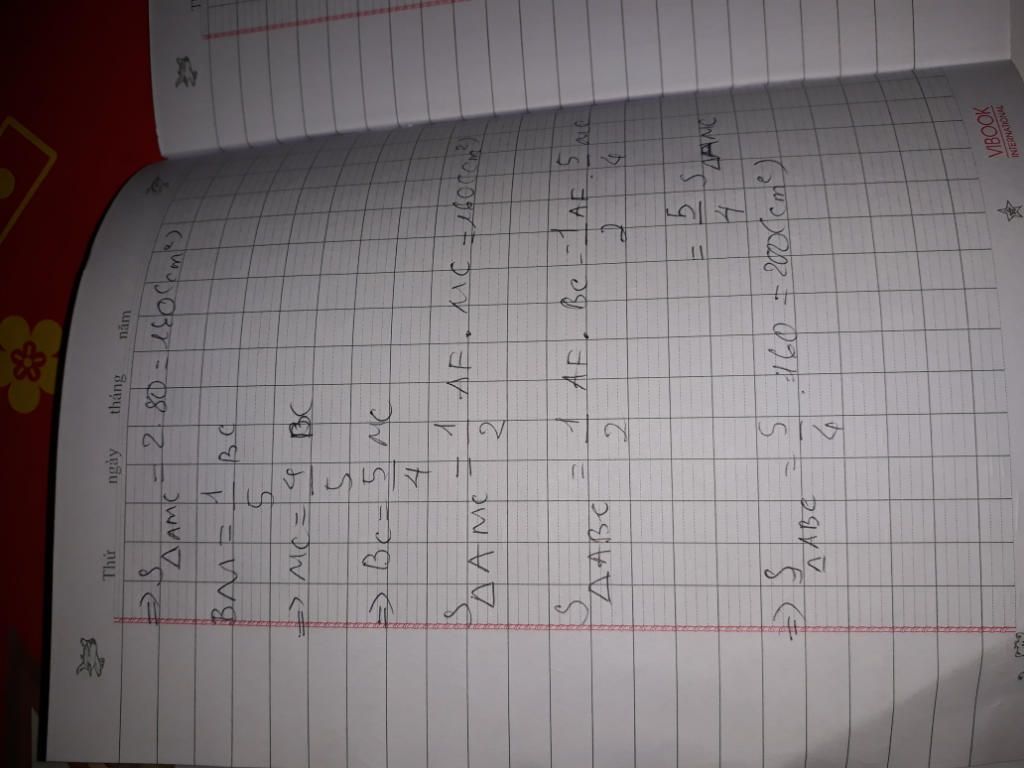 Thứ ngày tháng năm
=> S ΔAMC = 2.80 = 160(cm²)
BM = 1/5 BC
=> MC = 4/5 BC
=> BC = 5/4 MC
S ΔAMC = 1/2 AF . MC = 160(cm²)
S ΔABC = 1/2 AF . BC = 1/2 AF . 5/4 MC
= 5/4 S ΔAMC
=> S ΔABC = 5/4 . 160 = 200(cm²)
VIBOOK
INTERNATIONAL